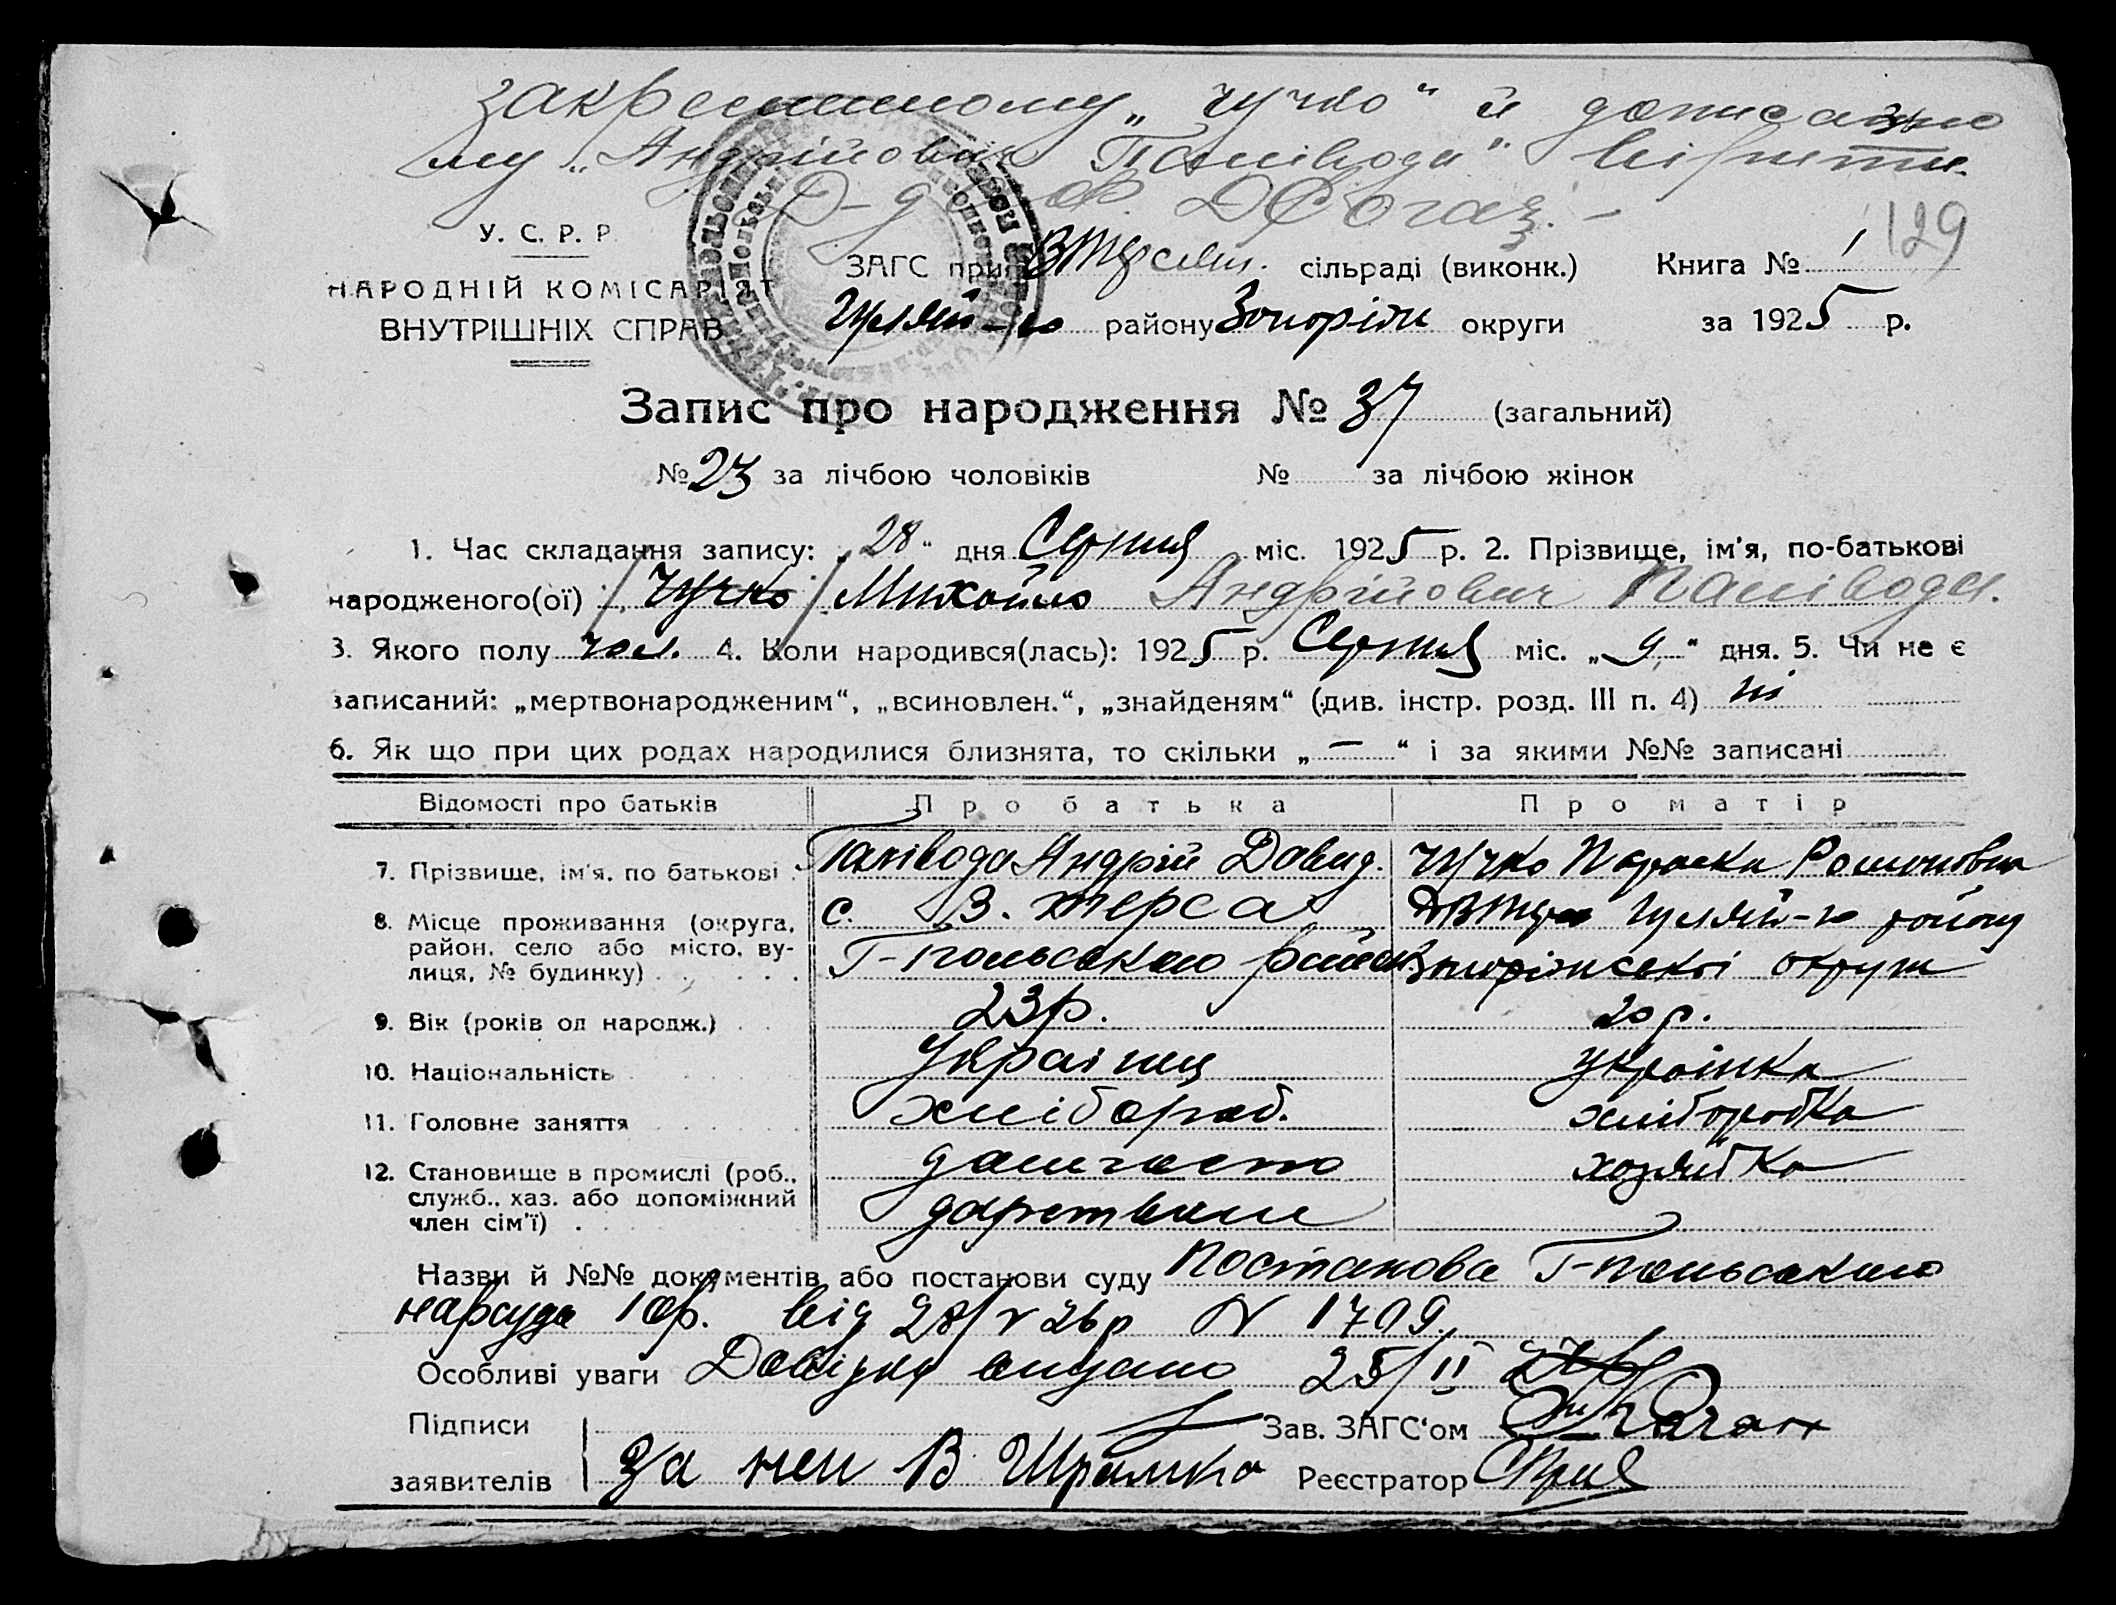 закресленному „Чучко“ й дописано
му „Андрійович Паливода“ вірити.
У. С. Р. Р.
НАРОДНІЙ КОМІСАРІЯТ
ВНУТРІШНІХ СПРАВ
129
ЗАГС при сільраді (виконк.) Книга № 1
Гуляй-го району Запоріж округи за 1925 р.
Запис про народження № 37 (загальний)
№ 23 за лічбою чоловіків № за лічбою жінок
1. Час складання запису: „28“ дня Серпня міс. 1925 р. 2. Прізвище, ім’я, по-батькові
народженого(ої) Чучко Михайло Андрійович Паливода.
3. Якого полу чол. 4. Коли народився(лась): 1925 р. Серпня міс. „9“ дня. 5. Чи не є
записаний: „мертвонародженим“, „всиновлен.“, „знайденям“ (див. інстр. розд. III п. 4) ні
6. Як що при цих родах народилися близнята, то скільки „—“ і за якими №№ записані
Відомості про батьків Про батька Про матір
7. Прізвище, ім’я, по батькові Палівода Андрій Давид. Чучко Параска Романовна
8. Місце проживання (округа, район, село або місто, вулиця, № будинку) с. В. Терса Г-польського район Гуляй-го району Запоріжської округи
9. Вік (років од народж.) 23 р. 20 р.
10. Національність Українец Українка
11. Головне заняття хлібороб. хліборобка
12. Становище в промислі (роб., служб., хаз. або допоміжний член сім’ї) хозяйка
Назви й №№ документів або постанови суду Постанова Г-польського
нарсуда 1 окр. від 28/V 26 р N 1709.
Особливі уваги Довідку видано 25/II
Підписи Зав. ЗАГС‘ом
заявителів за неи В Шрамко Реєстратор